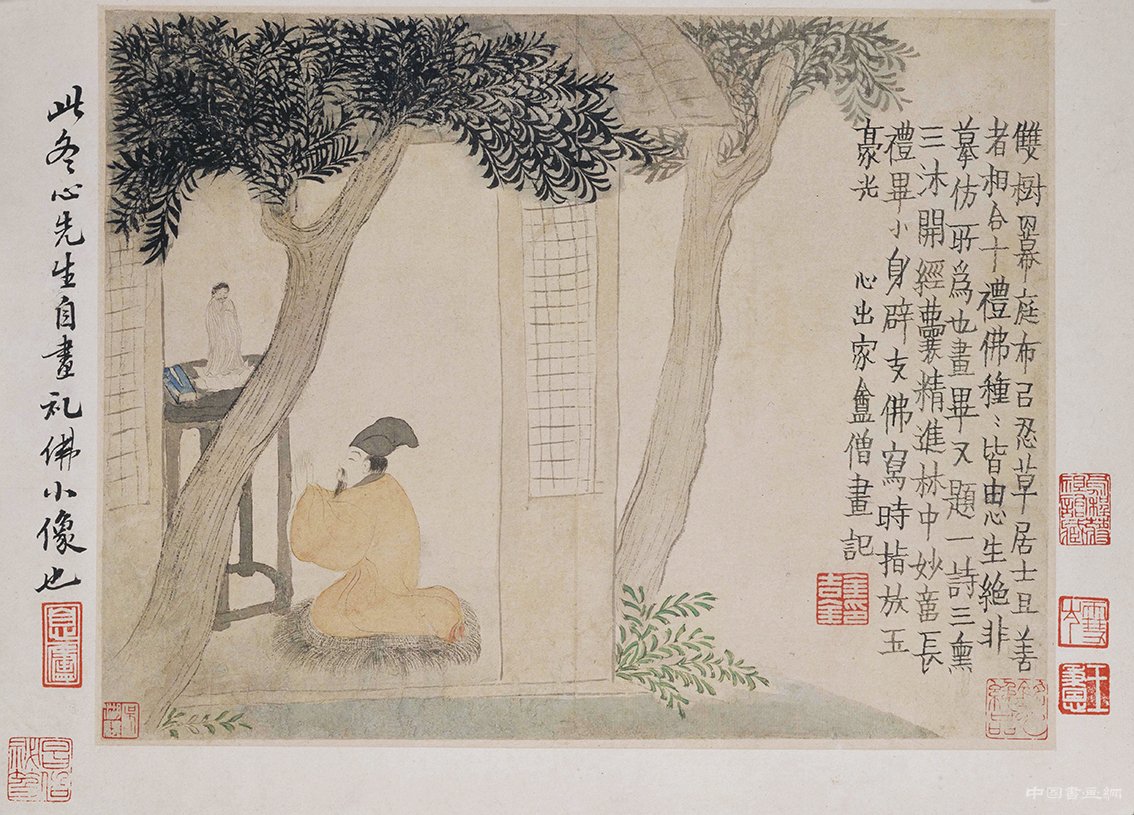 雙樹羃庭布已忍草居士且善
者相合十禮佛種〻皆由心生絶非
摹仿所爲也畫畢又題一詩三熏
三沐開經囊精進林中妙𤲿長
禮畢小身辟支佛寫時指放玉
豪光　心出家盦僧畫記
此冬心先生自畫礼佛小像也
中国書画網